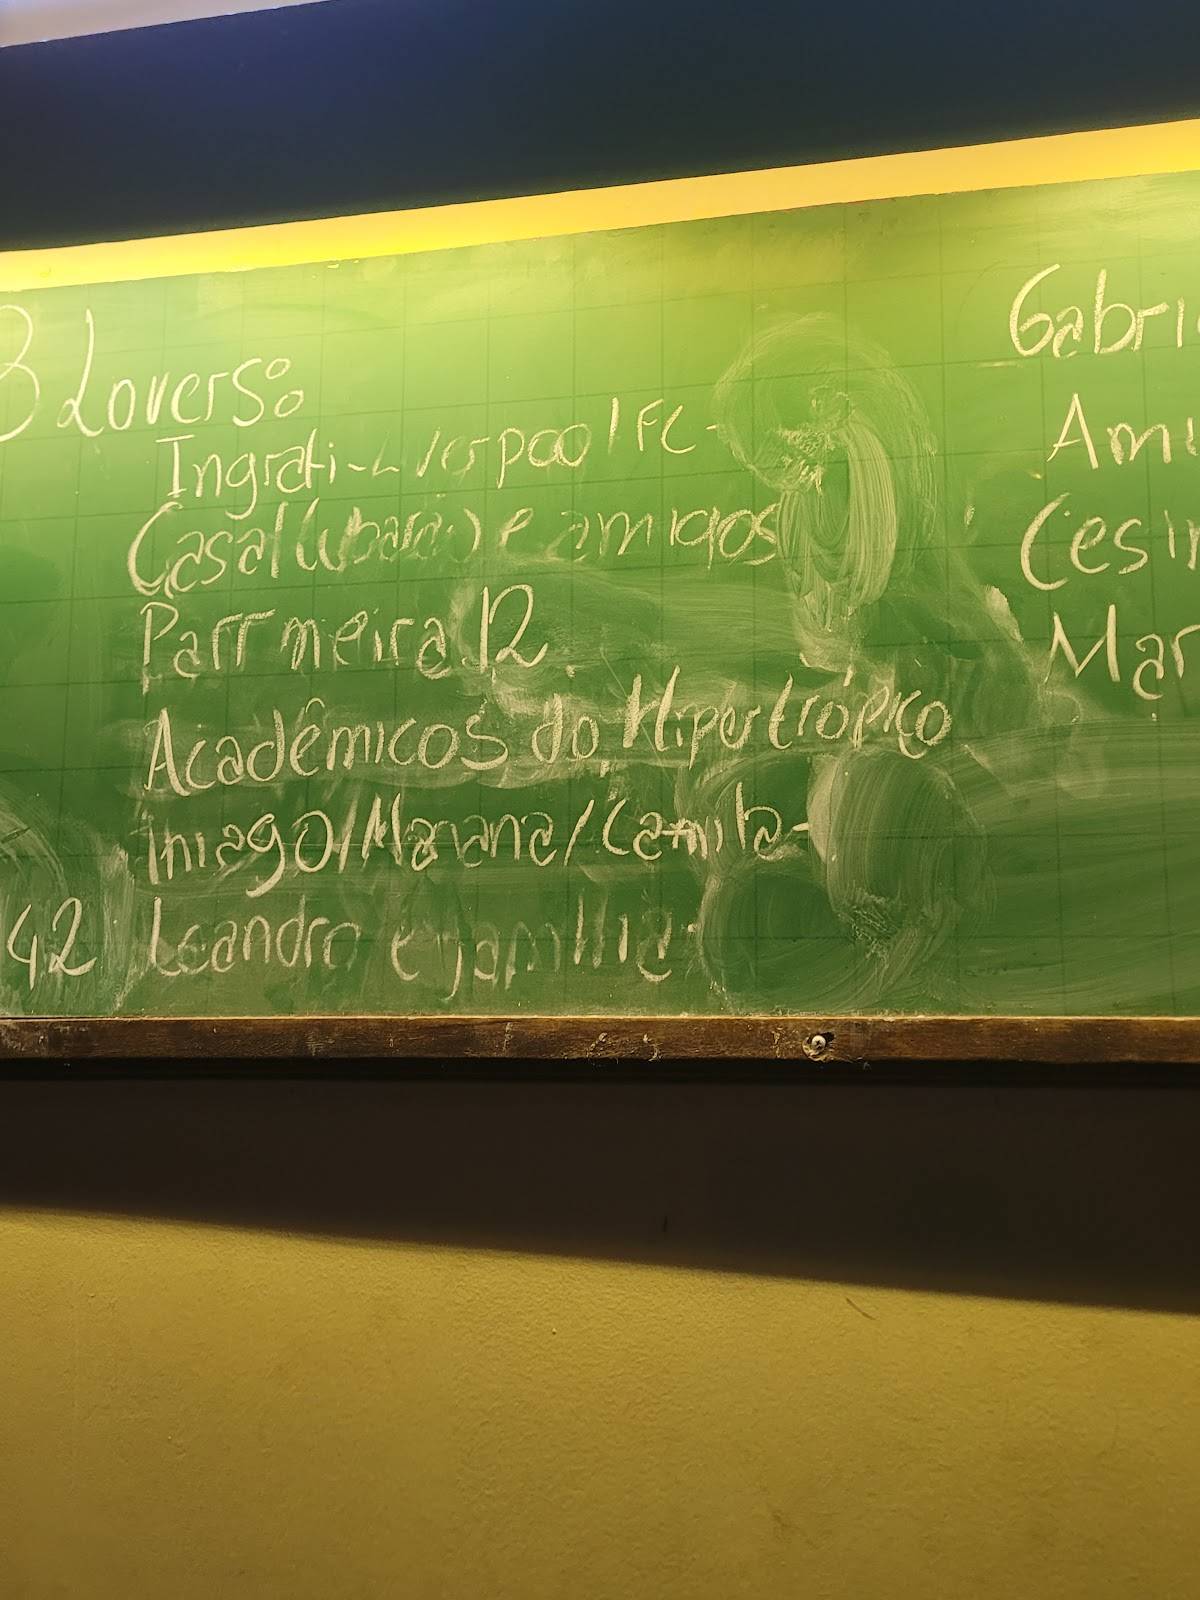 3 Lovers:
Ingrati - Liverpool FC -
Casal (Ubara) e amigos
Parrmeira 12
Acadêmicos do Hipertrópico
Thiago/Mariana/Camila -
42 Leandro e família
Gabri
Ami
Cesin
Mar